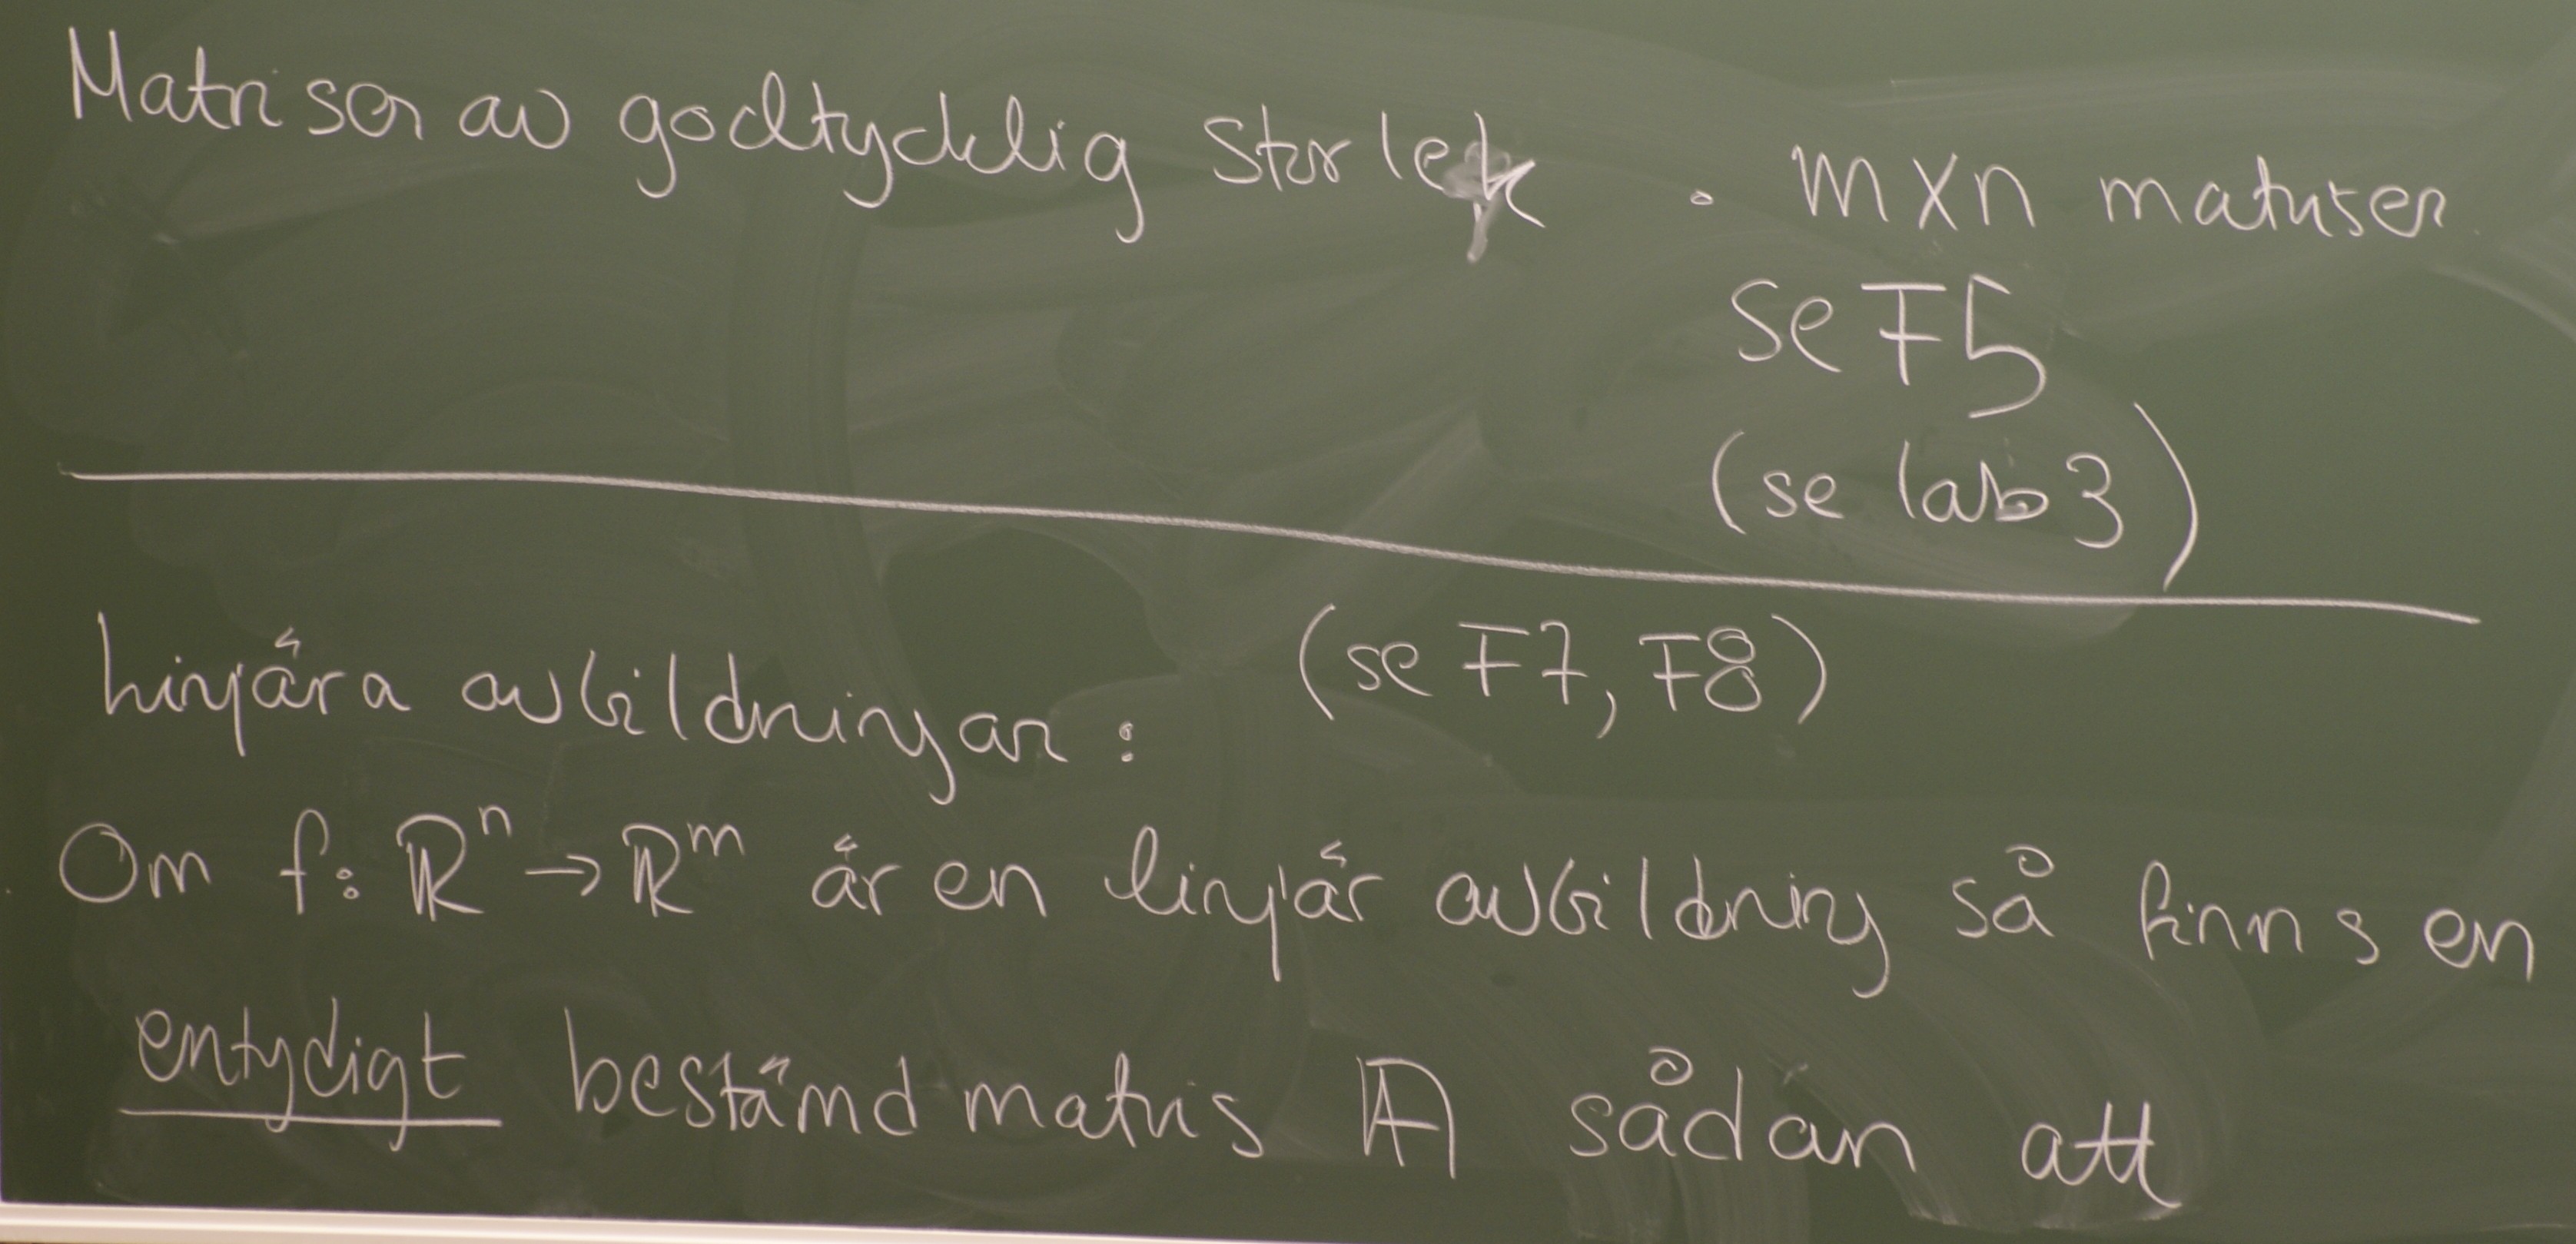 Matriser av godtycklig storlek • m×n matriser
se F5
(se lab 3)
Linjära avbildningar: (se F7, F8)
Om f: ℝⁿ → ℝᵐ är en linjär avbildning så finns en
entydigt bestämd matris 𝔸 sådan att